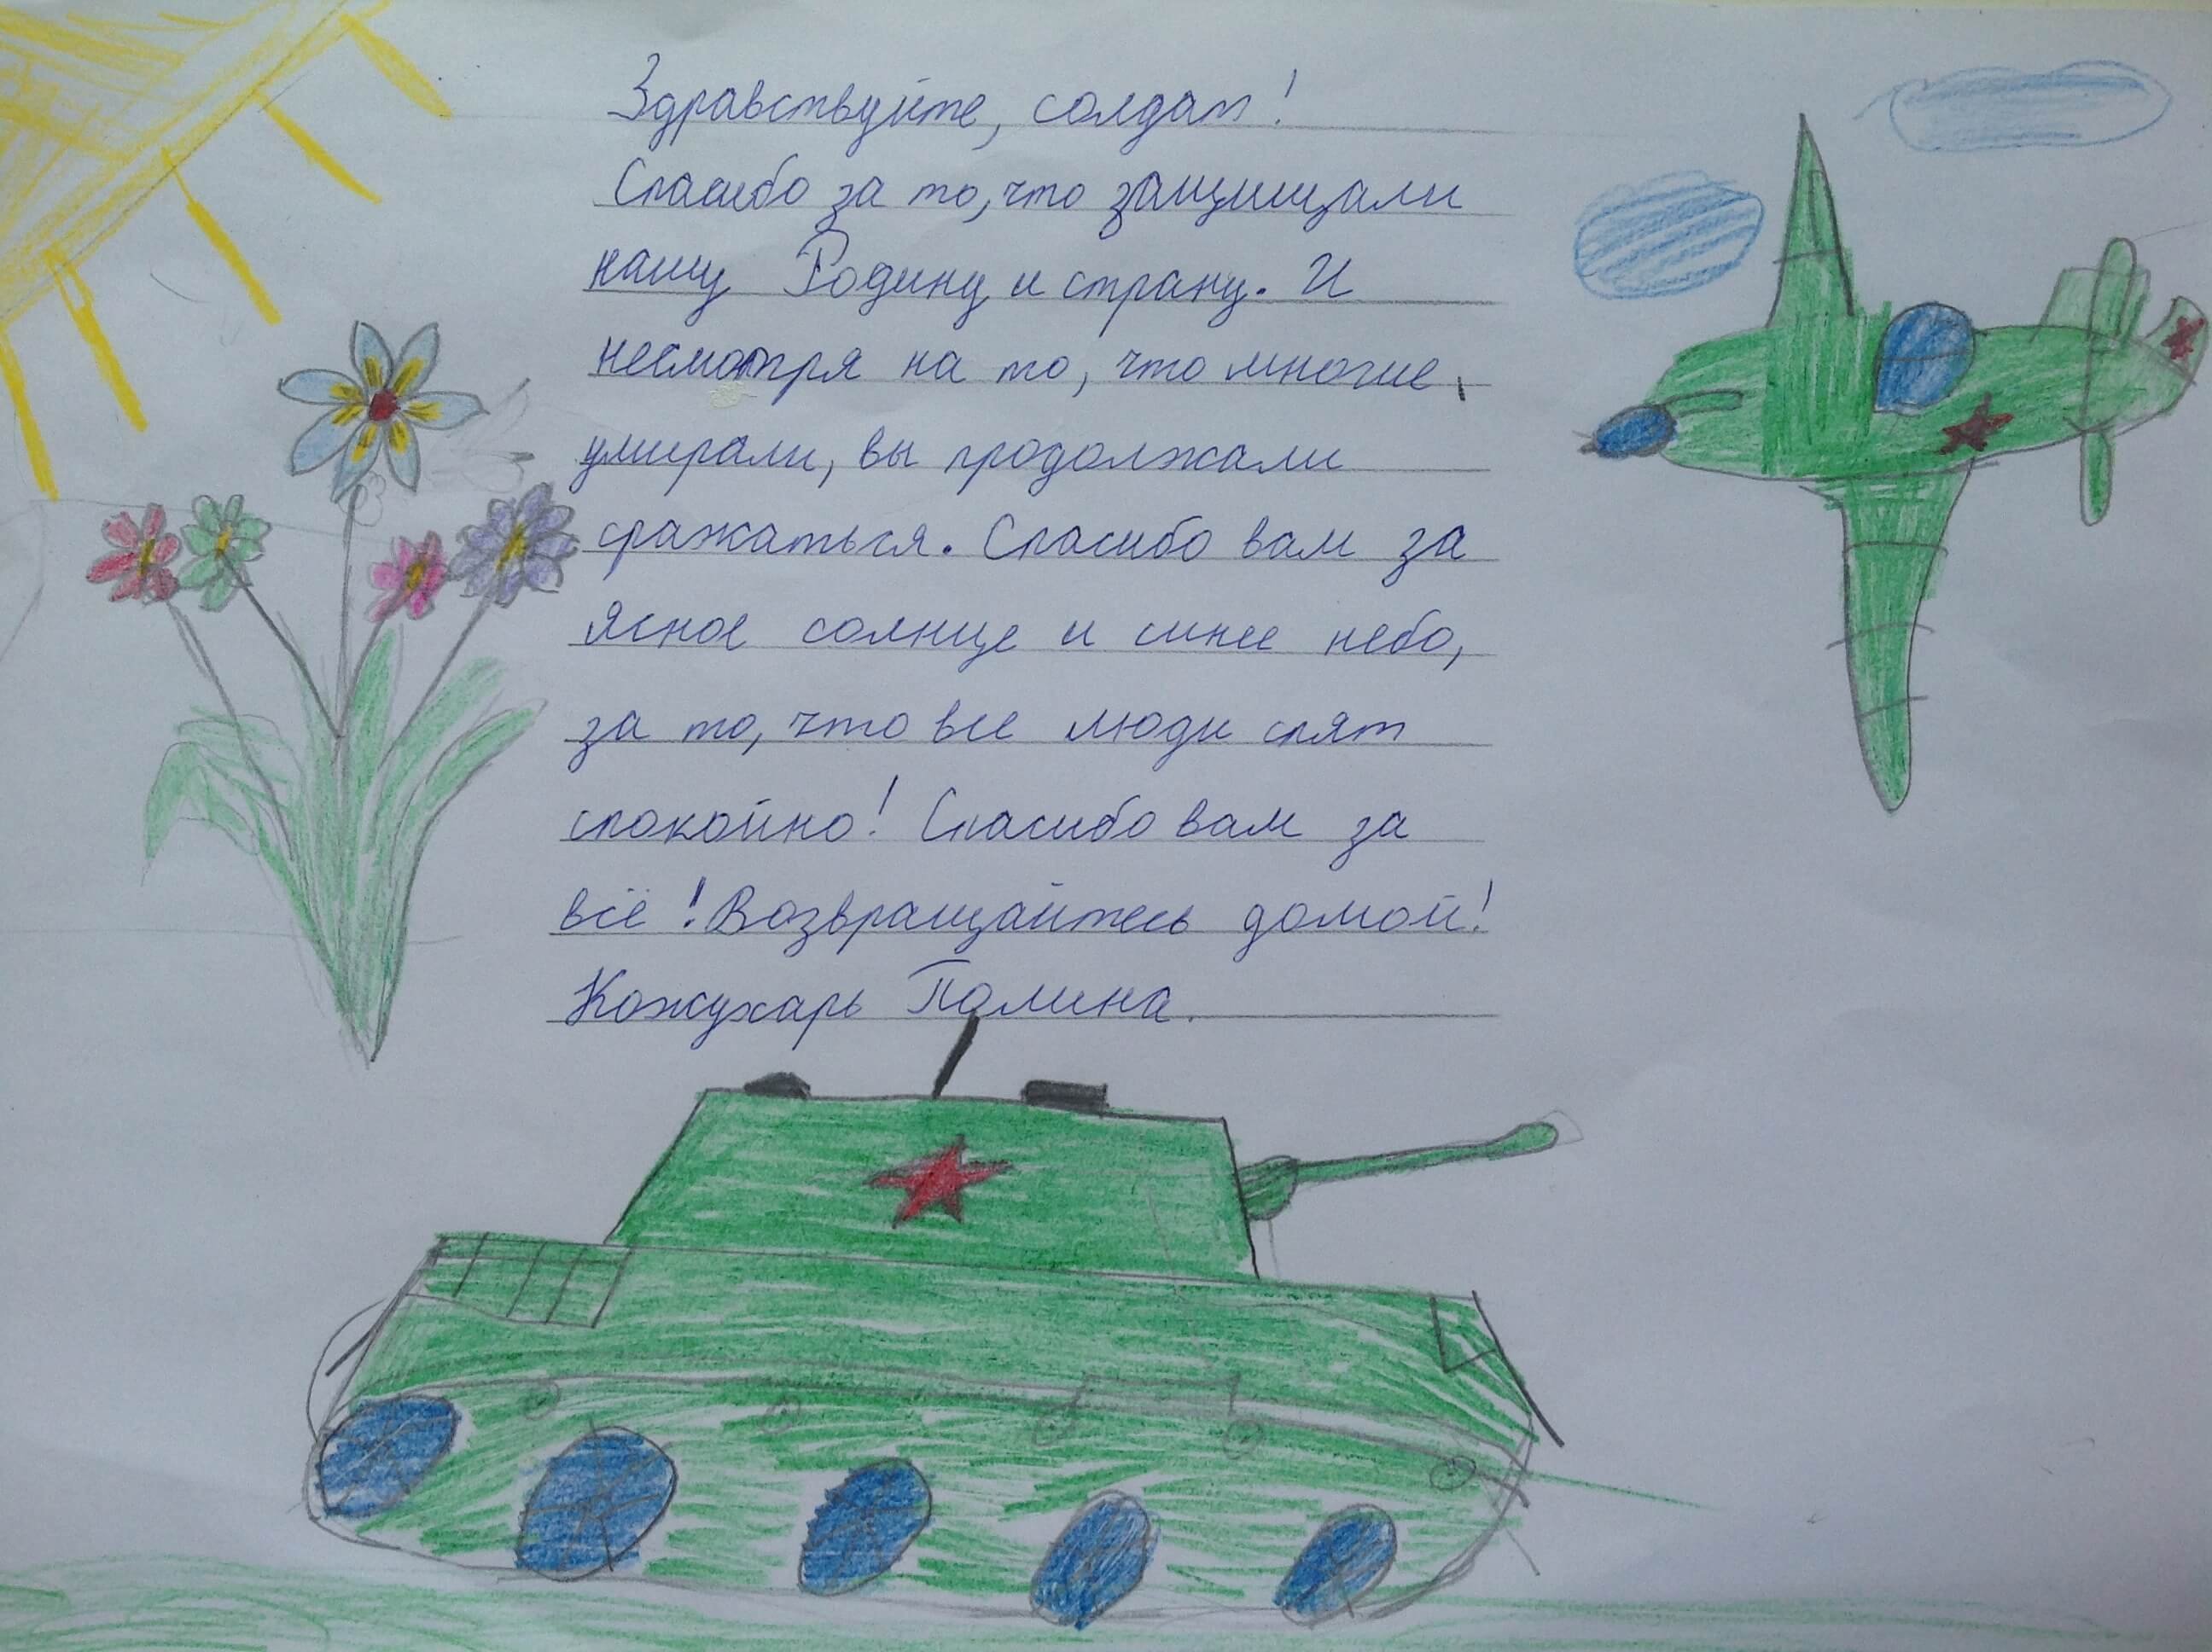 Здравствуйте, солдат!
Спасибо за то, что защищали
нашу Родину и страну. И
несмотря на то, что многие
умирали, вы продолжали
сражаться. Спасибо вам за
ясное солнце и синее небо,
за то, что все люди спят
спокойно! Спасибо вам за
всё! Возвращайтесь домой!
Кожухарь Полина.